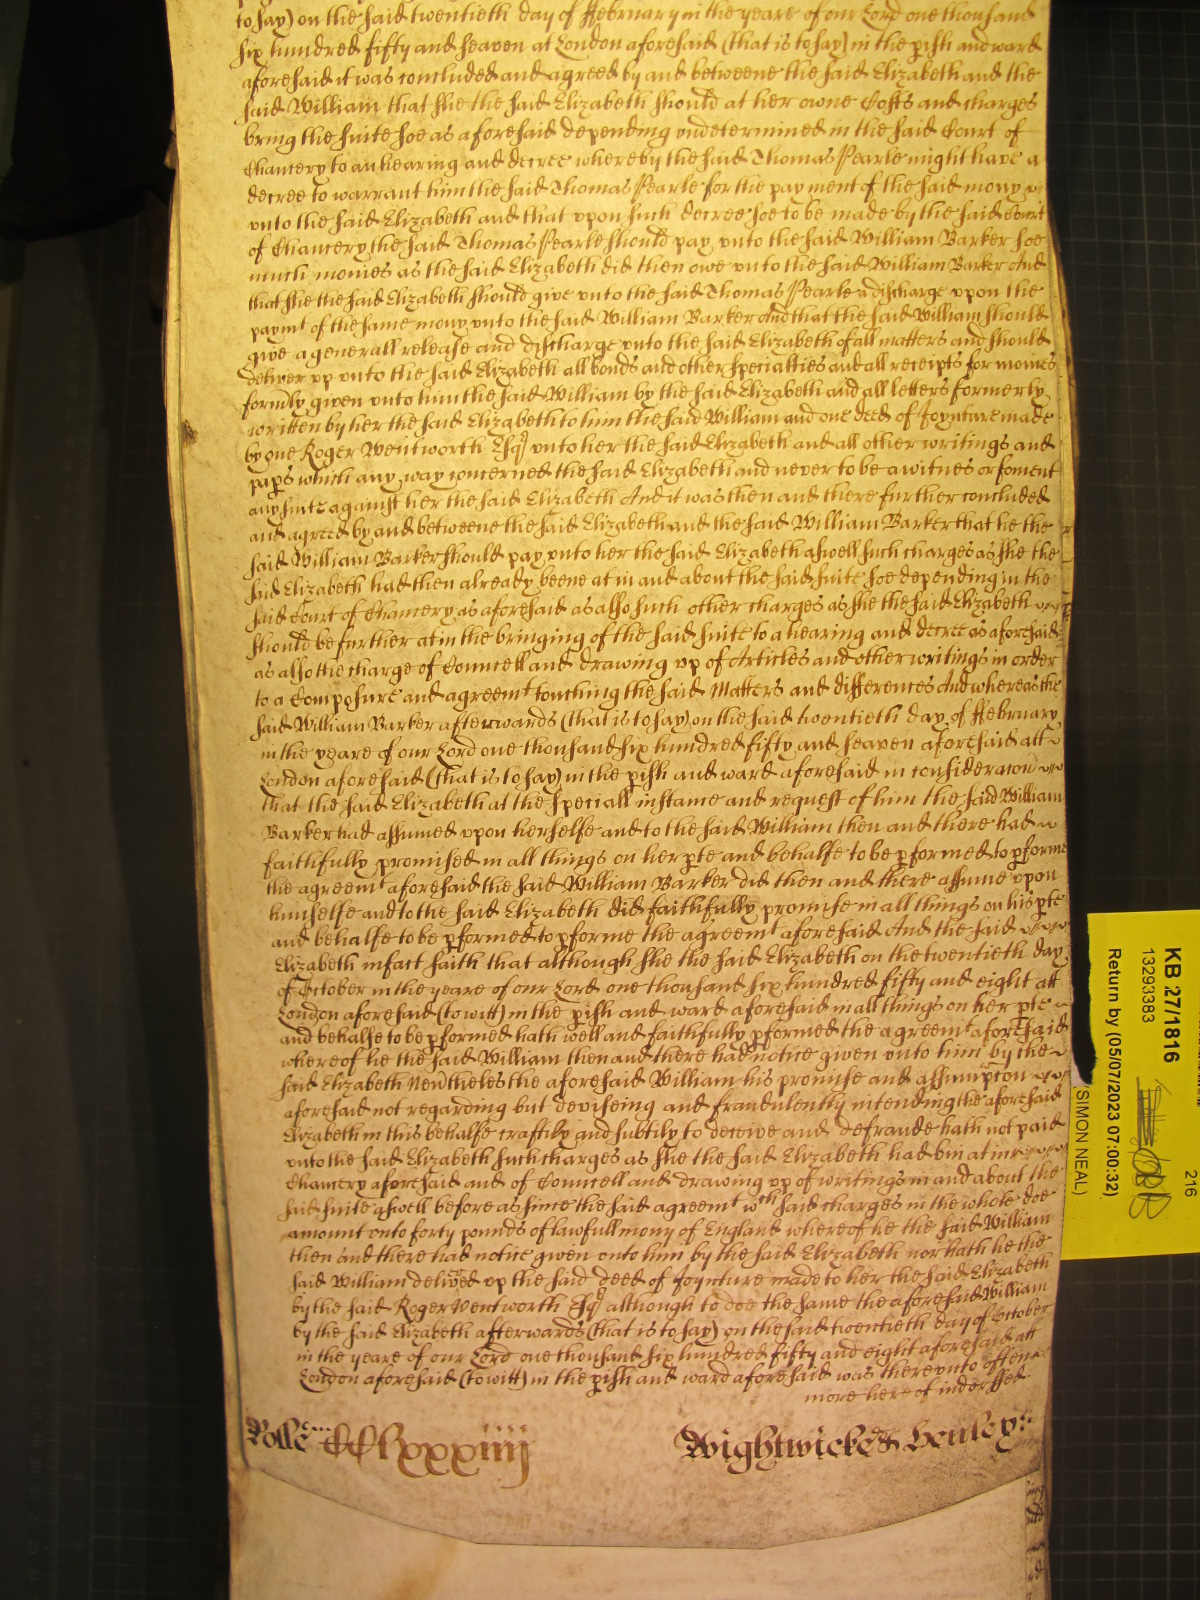 to say) on the said twentieth day of ffebruary in the yeare of our Lord one thousand
six hundred fifty and seaven at London aforesaid (that is to say) in the pish and ward
aforesaid it was concluded and agreed by and betweene the said Elizabeth and the
said William that she the said Elizabeth should at her owne Costs and charges
bring the suite soe as aforesaid depending undetermined in the said Court of
Chancery to an hearing and decree whereby the said Thomas Pearle might have a
decree to warrant him the said Thomas Pearle for the payment of the said mony
unto the said Elizabeth and that upon such decree soe to be made by the said Court
of Chancery the said Thomas Pearle should pay unto the said William Barker soe
much monies as the said Elizabeth did then owe unto the said William Barker And
that she the said Elizabeth should give unto the said Thomas Pearle a discharge upon the
paymt of the same mony unto the said William Barker And that the said William should
give a generall release and discharge unto the said Elizabeth of all matters and should
deliver up unto the said Elizabeth all bonds and other specialties and all receipts for monies
formly given unto him the said William by the said Elizabeth and all letters formerly
written by her the said Elizabeth to him the said William and one deed of Joynture made
by one Roger Wentworth Esqr unto her the said Elizabeth and all other writings and
paps which any way concerned the said Elizabeth and never to be a witnes or foment
any suite against her the said Elizabeth And it was then and there further concluded
and agreed by and betweene the said Elizabeth and the said William Barker that he the
said William Barker should pay unto her the said Elizabeth aswell such charges as she the
said Elizabeth had then already beene at in and about the said suite soe depending in the
said Court of Chancery as aforesaid as also such other charges as she the said Elizabeth
should be further at in the bringing of the said suite to a hearing and decree as aforesaid
as also the charge of Councell and drawing up of Articles and other writings in order
to a Composure and agreemt touching the said Matters and differences And whereas the
said William Barker afterwards (that is to say) on the said twentieth day of ffebruary
in the yeare of our Lord one thousand six hundred fifty and seaven aforesaid att
London aforesaid (that is to say) in the pish and ward aforesaid in consideracon
that the said Elizabeth at the speciall instance and request of him the said William
Barker had assumed upon herselfe and to the said William then and there had
faithfully promised in all things on her pte and behalfe to be pformed to pforme
the agreemt aforesaid the said William Barker did then and there assume upon
himselfe and to the said Elizabeth did faithfully promise in all things on his pte
and behalfe to be pformed to pforme the agreemt aforesaid And the said
Elizabeth in fact saith that although she the said Elizabeth on the twentieth day
of October in the yeare of our Lord one thousand six hundred fifty and eight att
London aforesaid (to witt) in the pish and ward aforesaid in all things on her pte
and behalfe to be pformed hath well and faithfully pformed the agreemt aforesaid
whereof he the said William then and there had notice given unto him by the
said Elizabeth Nevtheles the aforesaid William his promise and assumpton
aforesaid not regarding but deviseing and fraudulently intending the aforesaid
Elizabeth in this behalfe craftily and subtily to deceive and defraude hath not paid
unto the said Elizabeth such charges as she the said Elizabeth had bin at in
Chancery aforesaid and of Councell and drawing up of writings in and about the
said suite aswell before as since the said agreemt wch said charges in the whole doe
amount unto forty pounds of lawfull mony of England whereof he the said William
then and there had notice given unto him by the said Elizabeth nor hath he the
said William delived up the said deed of Joynture made to her the said Elizabeth
by the said Roger Wentworth Esqr although to doe the same the aforesaid William
by the said Elizabeth afterwards (that is to say) on the said twentieth day of October
in the yeare of our Lord one thousand six hundred fifty and eight aforesaid att
London aforesaid (to witt) in the pish and ward aforesaid was thereunto often
more hereof indorssed
Rolle CClxxxiiij
Wightwicke & Henley
KB 27/1816
13293383
Return by (05/07/2023 07:00:32)
SIMON NEAL)
216